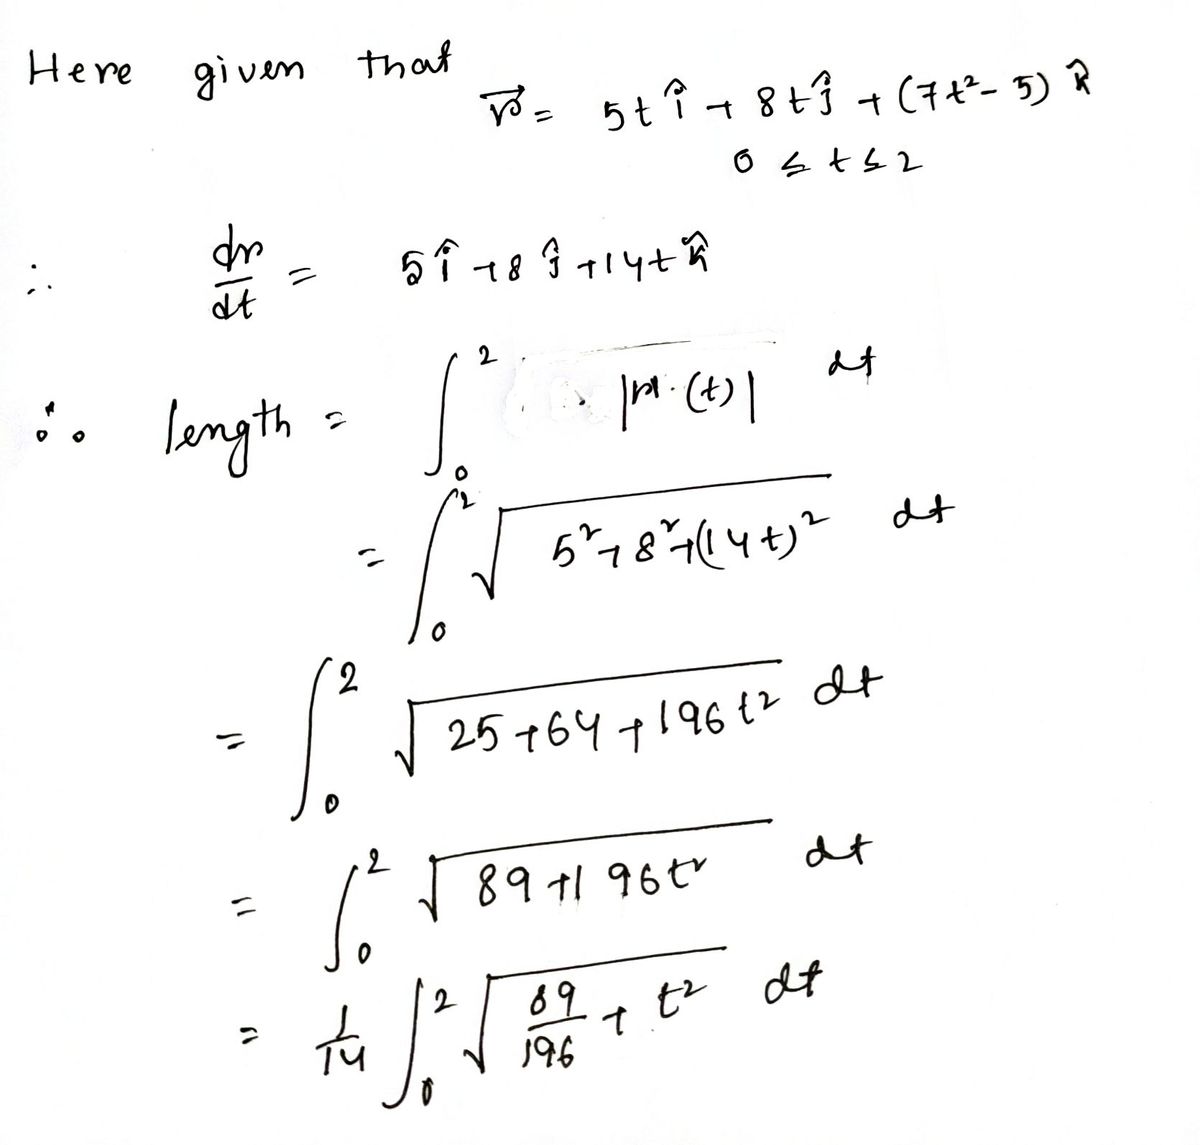 Here given that
r⃗ = 5t î + 8t ĵ + (7t² - 5) k̂
0 ≤ t ≤ 2
∴ dr/dt = 5 î + 8 ĵ + 14t k̂
∴ length = ∫₀² |r'(t)| dt
= ∫₀² √(5² + 8² + (14t)²) dt
= ∫₀² √(25 + 64 + 196 t²) dt
= ∫₀² √(89 + 196t²) dt
= 1/14 ∫₀² √(89/196 + t²) dt